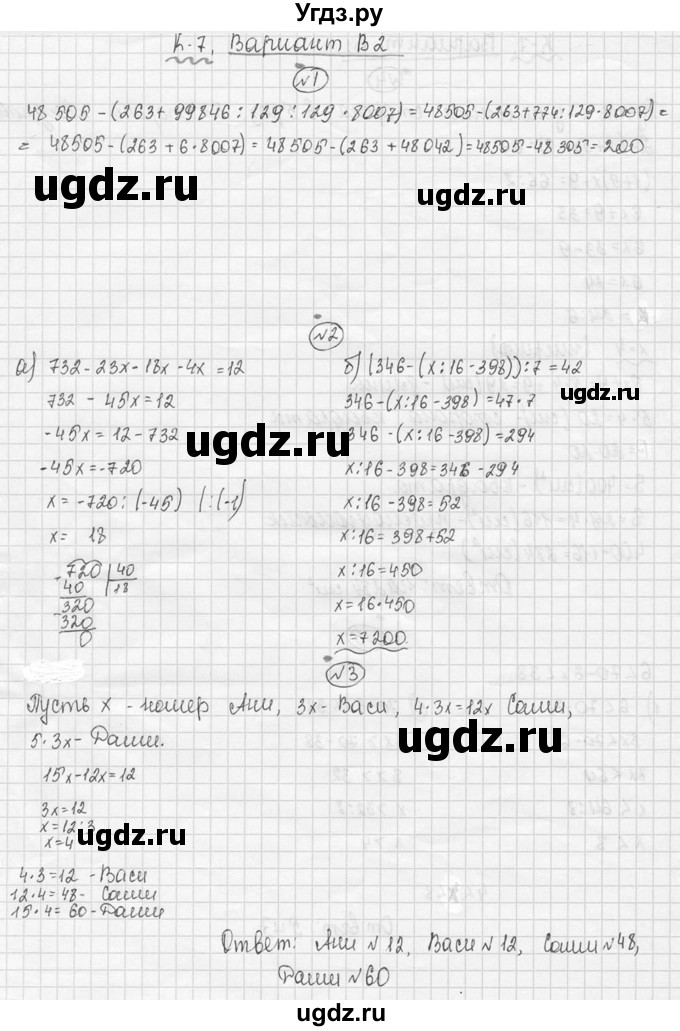 Угдз.ру
К-7, Вариант В2
№1
48 505 - (263 + 99846 : 129 : 129 · 8007) = 48505 - (263 + 774 : 129 · 8007) =
= 48505 - (263 + 6 · 8007) = 48505 - (263 + 48042) = 48505 - 48 305 = 200
ugdz.ru
ugdz.ru
№2
а) 732 - 23x - 18x - 4x = 12
732 - 45x = 12
-45x = 12 - 732
-45x = -720
x = -720 : (-45) | : (-1)
x = 18
720 | 40
40 | 18
320
320
0
б) (346 - (x : 16 - 398)) : 7 = 42
346 - (x : 16 - 398) = 47 · 7
346 - (x : 16 - 398) = 294
x : 16 - 398 = 346 - 294
x : 16 - 398 = 52
x : 16 = 398 + 52
x : 16 = 450
x = 16 · 450
x = 7200
ugdz.ru
ugdz.ru
№3
Пусть x - номер Ани, 3x - Васи, 4 · 3x = 12x Саши,
5 · 3x - Даши.
15x - 12x = 12
3x = 12
x = 12 : 3
x = 4
4 · 3 = 12 - Васи
12 · 4 = 48 - Саши
15 · 4 = 60 - Даши
ugdz.ru
ugdz.ru
Ответ: Ани №12, Васи №12, Саши №48,
Даши №60
ugdz.ru
ugdz.ru